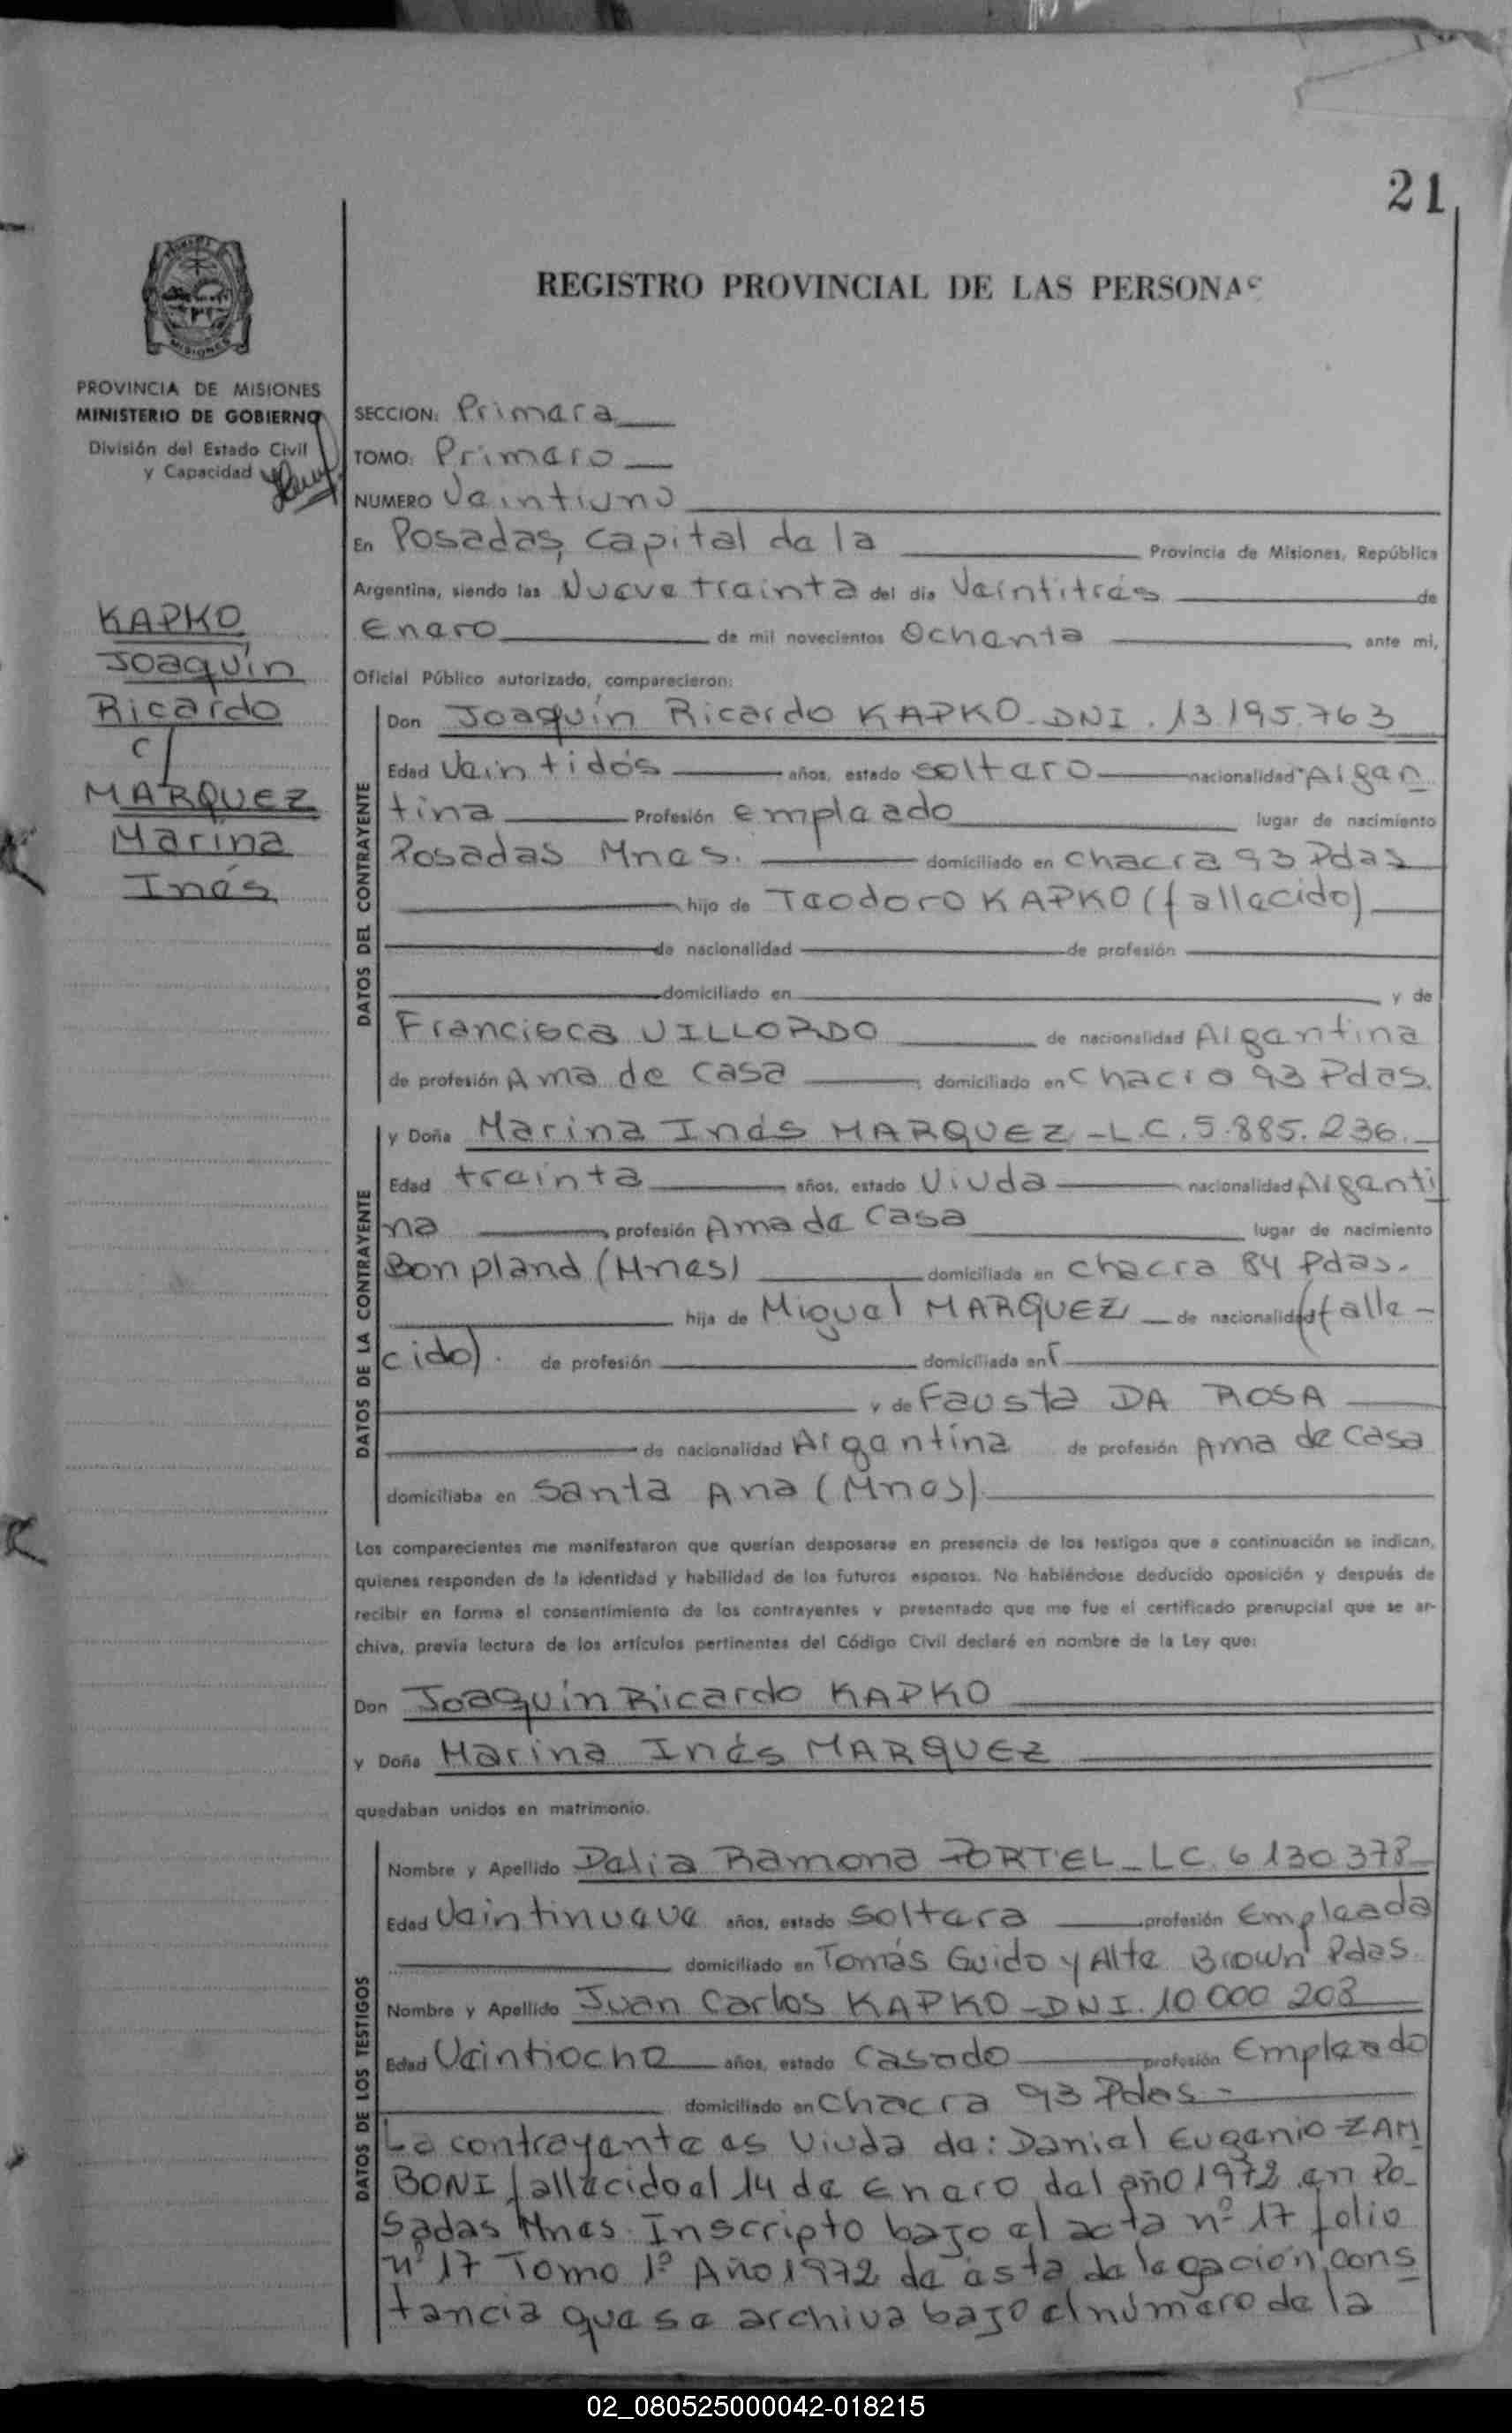 21
REGISTRO PROVINCIAL DE LAS PERSONAS
MISIONES
PROVINCIA DE MISIONES
MINISTERIO DE GOBIERNO
División del Estado Civil
y Capacidad
KAPKO
Joaquín
Ricardo
c/
MARQUEZ
Marina
Inés
SECCION: Primera
TOMO: Primero
NUMERO Veintiuno
En Posadas, Capital de la Provincia de Misiones, República
Argentina, siendo las Nueve treinta del dia Veintitrés de
Enero de mil novecientos Ochenta ante mi,
Oficial Público autorizado, comparecieron:
DATOS DEL CONTRAYENTE
Don Joaquín Ricardo KAPKO - DNI. 13.195.763
Edad Veintidós años, estado soltero nacionalidad Argen
tina Profesión empleado lugar de nacimiento
Posadas Mnes. domiciliado en chacra 93 Pdas
hijo de Teodoro KAPKO (fallecido)
de nacionalidad de profesión
domiciliado en y de
Francisca VILLORDO de nacionalidad Argentina
de profesión Ama de casa domiciliado en Chacra 93 Pdas.
DATOS DE LA CONTRAYENTE
y Doña Marina Inés MARQUEZ - L.C. 5.885.236.
Edad treinta años, estado Viuda nacionalidad Argenti
na profesión Ama de casa lugar de nacimiento
Bonpland (Mnes) domiciliada en chacra 84 Pdas.
hija de Miguel MARQUEZ de nacionalidad (falle-
cido). de profesión domiciliada en
y de Fausta DA ROSA
de nacionalidad Argentina de profesión Ama de casa
domiciliaba en Santa Ana (Mnes).
Los comparecientes me manifestaron que querían desposarse en presencia de los testigos que a continuación se indican,
quienes responden de la identidad y habilidad de los futuros esposos. No habiéndose deducido oposición y después de
recibir en forma el consentimiento de los contrayentes y presentado que me fue el certificado prenupcial que se ar-
chiva, previa lectura de los artículos pertinentes del Código Civil declaré en nombre de la Ley que:
Don Joaquín Ricardo KAPKO
y Doña Marina Inés MARQUEZ
quedaban unidos en matrimonio.
DATOS DE LOS TESTIGOS
Nombre y Apellido Delia Ramona PORTEL - LC. 6 130 378
Edad Veintinueve años, estado soltera profesión Empleada
domiciliado en Tomás Guido y Alte Brown Pdas.
Nombre y Apellido Juan Carlos KAPKO - DNI. 10 000 208
Edad Veintiocho años, estado Casado profesión Empleado
domiciliado en Chacra 93 Pdas -
La contrayente es Viuda de: Daniel Eugenio ZAM
BONI fallecido el 14 de Enero del año 1972 en Po-
sadas Mnes. Inscripto bajo el acta nº 17 folio
nº 17 Tomo 1º Año 1972 de ésta delegación, cons
tancia que se archiva bajo el número de la
02_080525000042-018215